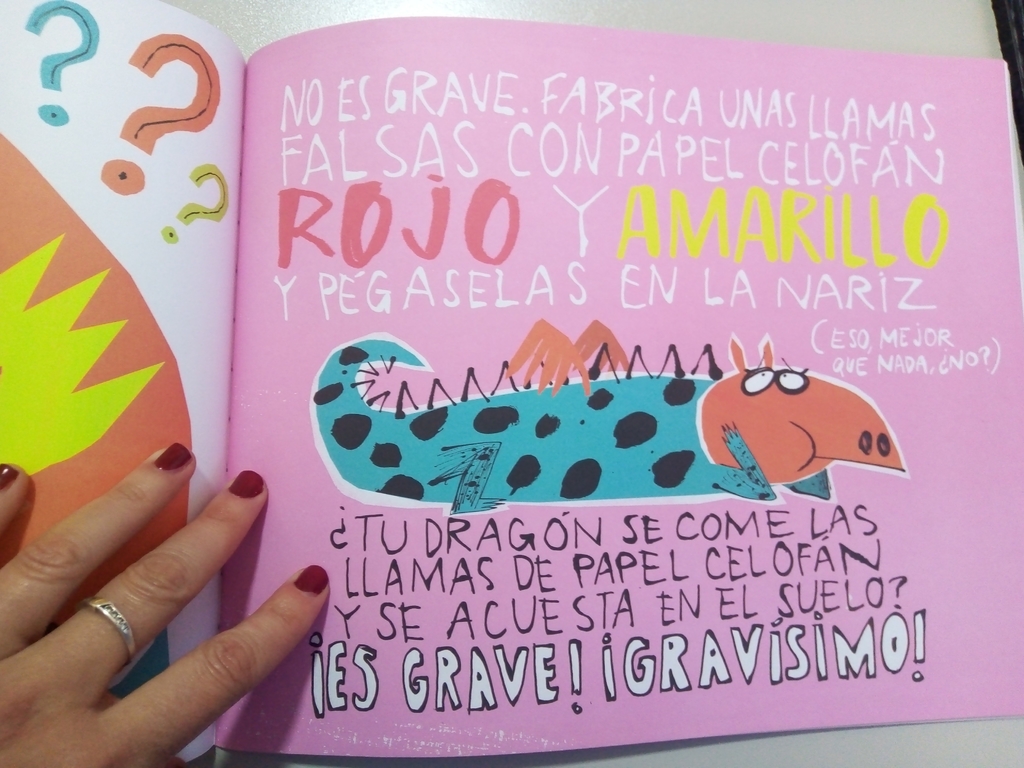 ? ? ?
NO ES GRAVE. FABRICA UNAS LLAMAS
FALSAS CON PAPEL CELOFÁN
ROJO Y AMARILLO
Y PÉGASELAS EN LA NARIZ
(ESO, MEJOR
QUE NADA, ¿NO?)
¿TU DRAGÓN SE COME LAS
LLAMAS DE PAPEL CELOFÁN
Y SE ACUESTA EN EL SUELO?
¡ES GRAVE! ¡GRAVÍSIMO!